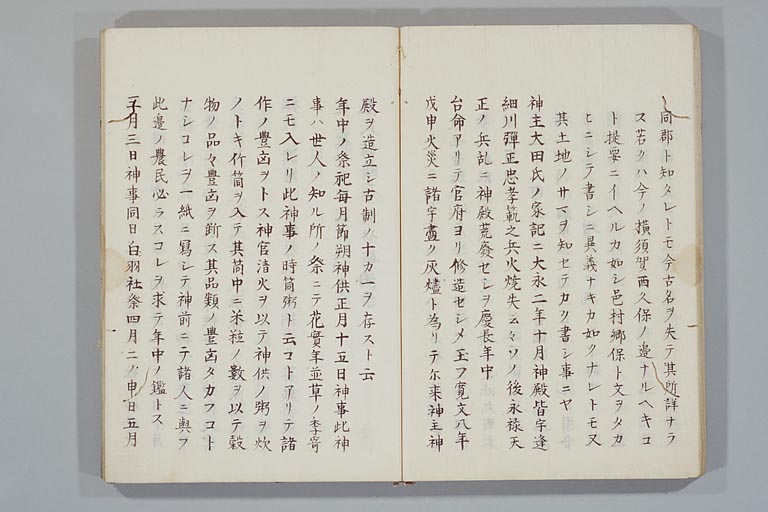 同郡ト知タレトモ今古名ヲ失テ其所詳ナラ
ス若クハ今ノ横須賀西久保ノ邉ナルヘキコ
ト提要ニイヘルカ如シ邑村郷保ト文ヲタカ
ヒニシテ書シニ異義ナキカ如クナレトモ又
其土地ノサマヲ知セテカク書シ事ニヤ
神主大田氏ノ家記ニ大永二年十月神殿皆宇逢
細川彈正忠孝範之兵火焼失云々ソノ後永禄天
正ノ兵乱ニ神殿荒廢セシヲ慶長年中
台命アリテ官府ヨリ修造セシメ玉フ寛文八年
戊申火災ニ諸宇盡ク灰燼ト為リテ尓来神主神
殿ヲ造立シ古制ノ十カ一ヲ存スト云
年中ノ祭祀毎月節朔神供正月十五日神事此神
事ハ世人ノ知ル所ノ祭ニテ花實年並草ノ季寄
ニモ入レリ此神事ノ時筒粥ト云コトアリテ諸
作ノ豊凶ヲトス神官清火ヲ以テ神供ノ粥ヲ炊
ノトキ竹筒ヲ入テ其筒中ニ米粒ノ數ヲ以テ穀
物ノ品々豊凶ヲ断ス其品類ノ豊凶タカフコト
ナシコレヲ一紙ニ寫シテ神前ニテ諸人ニ與フ
此邉ノ農民必ラスコレヲ求テ年中ノ鑑トス
月三日神事同日白羽社祭四月二ノ申日五月